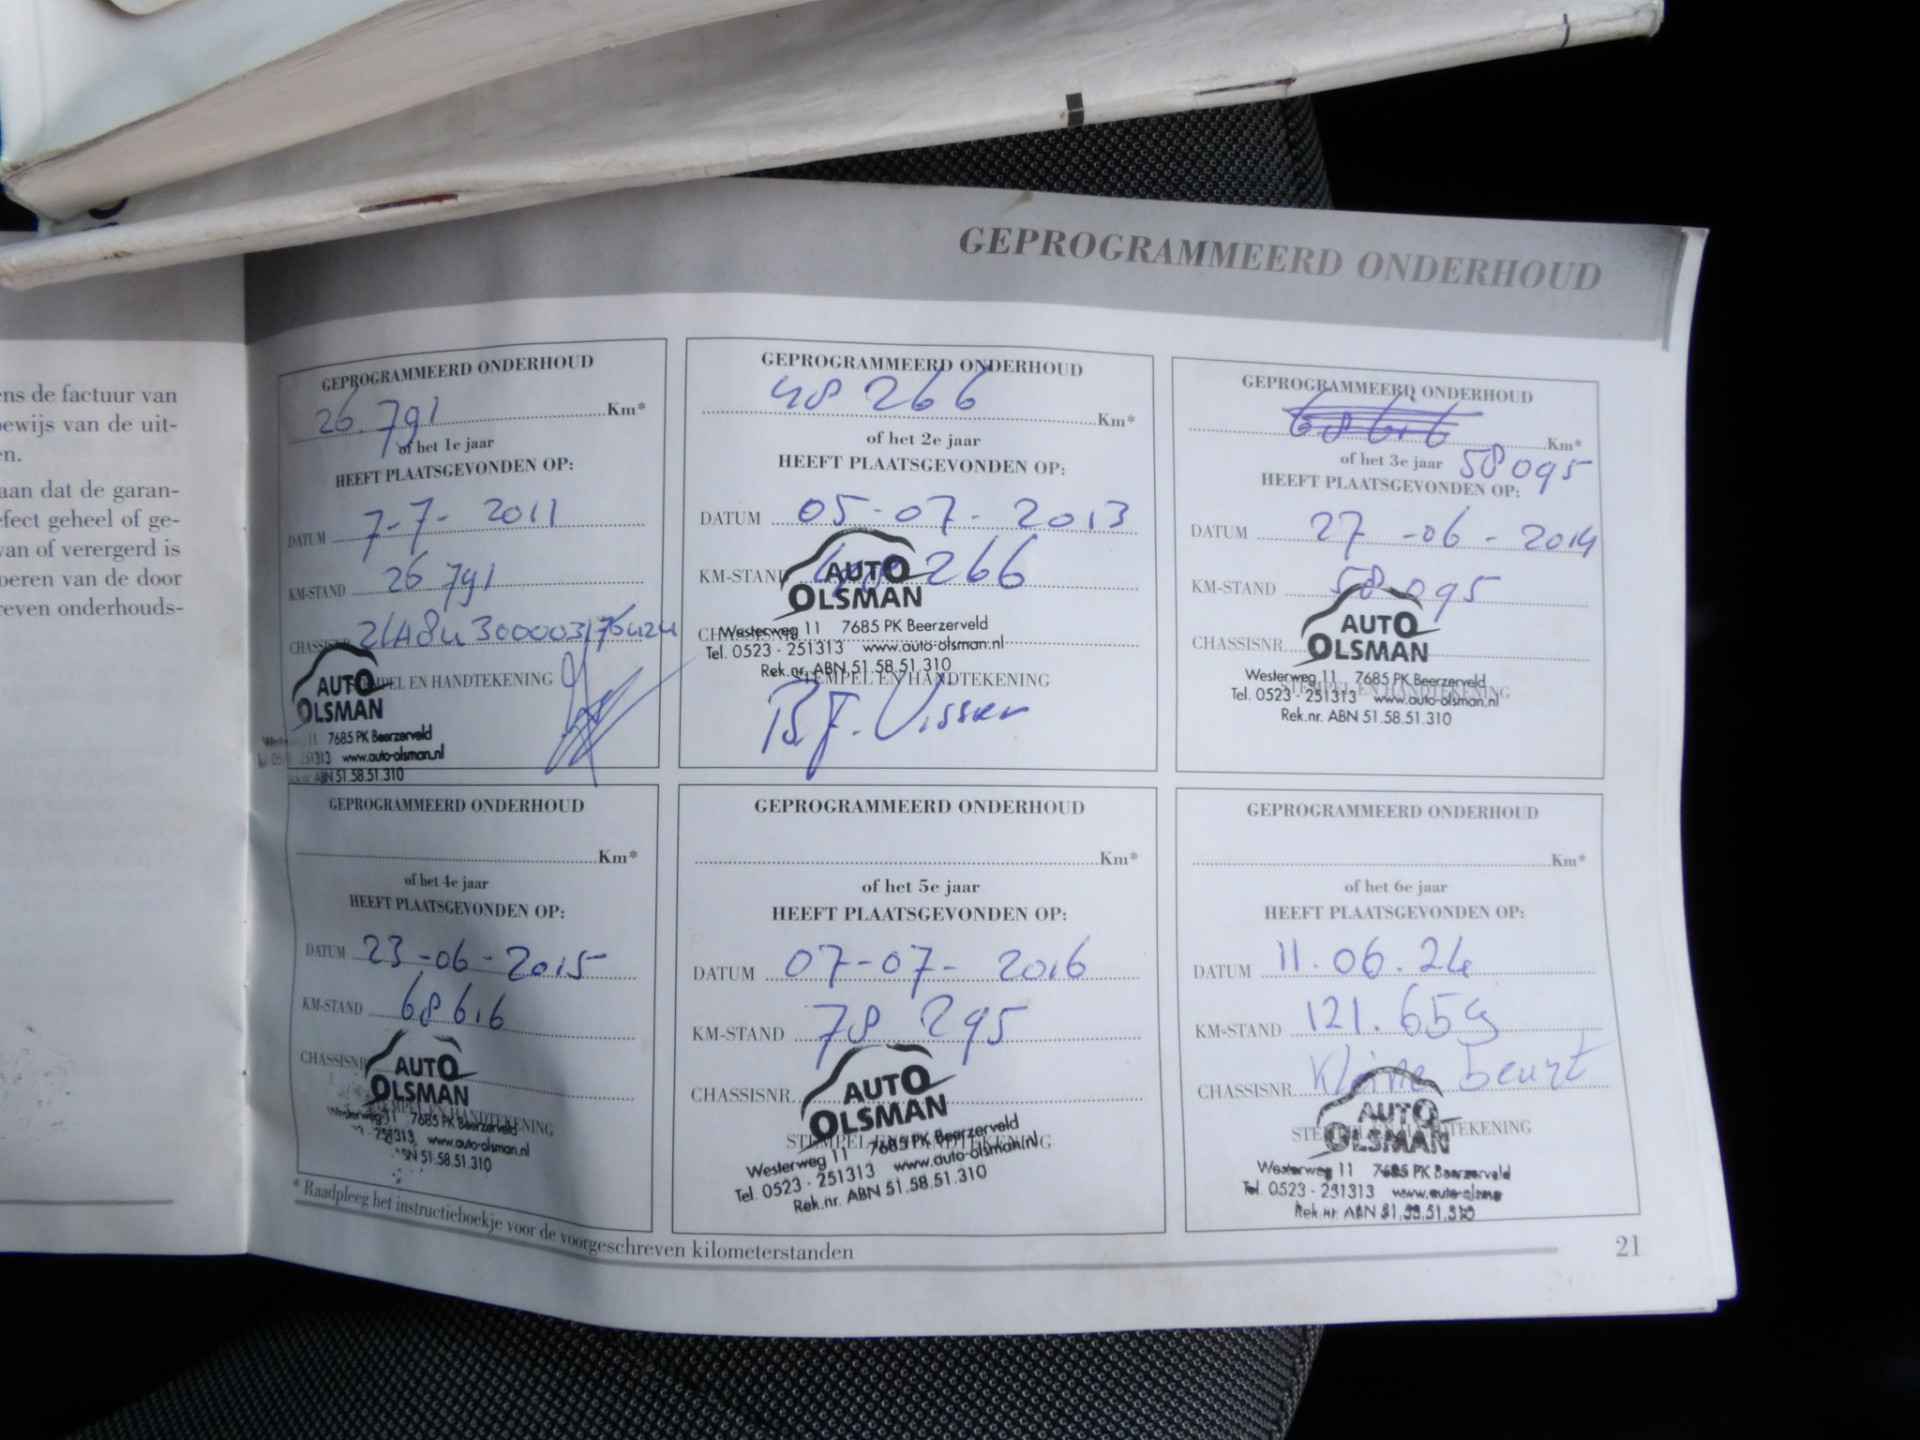 GEPROGRAMMEERD ONDERHOUD
ens de factuur van
ewijs van de uit-
en.
aan dat de garan-
efect geheel of ge-
van of verergerd is
oeren van de door
reven onderhouds-
GEPROGRAMMEERD ONDERHOUD
26.791 Km*
of het 1e jaar
HEEFT PLAATSGEVONDEN OP:
DATUM 7-7-2011
KM-STAND 26791
CHASSISNR.
STEMPEL EN HANDTEKENING
AUTO
OLSMAN
Westerweg 11 7685 PK Beerzerveld
251313 www.auto-olsman.nl
Rek.nr. ABN 51.58.51.310
GEPROGRAMMEERD ONDERHOUD
48 266 Km*
of het 2e jaar
HEEFT PLAATSGEVONDEN OP:
DATUM 05-07-2013
KM-STAND 48 266
CHASSISNR.
STEMPEL EN HANDTEKENING
AUTO
OLSMAN
Westerweg 11 7685 PK Beerzerveld
Tel. 0523 - 251313 www.auto-olsman.nl
Rek.nr. ABN 51.58.51.310
B.J. Visser
GEPROGRAMMEERD ONDERHOUD
68616 Km*
of het 3e jaar 58095
HEEFT PLAATSGEVONDEN OP:
DATUM 27-06-2014
KM-STAND 58095
CHASSISNR.
STEMPEL EN HANDTEKENING
AUTO
OLSMAN
Westerweg 11 7685 PK Beerzerveld
Tel. 0523 - 251313 www.auto-olsman.nl
Rek.nr. ABN 51.58.51.310
GEPROGRAMMEERD ONDERHOUD
Km*
of het 4e jaar
HEEFT PLAATSGEVONDEN OP:
DATUM 23-06-2015
KM-STAND 68616
CHASSISNR.
STEMPEL EN HANDTEKENING
AUTO
OLSMAN
Westerweg 11 7685 PK Beerzerveld
251313 www.auto-olsman.nl
ABN 51.58.51.310
GEPROGRAMMEERD ONDERHOUD
Km*
of het 5e jaar
HEEFT PLAATSGEVONDEN OP:
DATUM 07-07-2016
KM-STAND 78 295
CHASSISNR.
STEMPEL EN HANDTEKENING
AUTO
OLSMAN
Westerweg 11 7685 PK Beerzerveld
Tel. 0523 - 251313 www.auto-olsman.nl
Rek.nr. ABN 51.58.51.310
GEPROGRAMMEERD ONDERHOUD
Km*
of het 6e jaar
HEEFT PLAATSGEVONDEN OP:
DATUM 11.06.24
KM-STAND 121.659
CHASSISNR. Kleine beurt
STEMPEL EN HANDTEKENING
AUTO
OLSMAN
Westerweg 11 7685 PK Beerzerveld
Tel. 0523 - 251313 www.auto-olsma
Rek.nr. ABN 51.58.51.310
* Raadpleeg het instructieboekje voor de voorgeschreven kilometerstanden
21